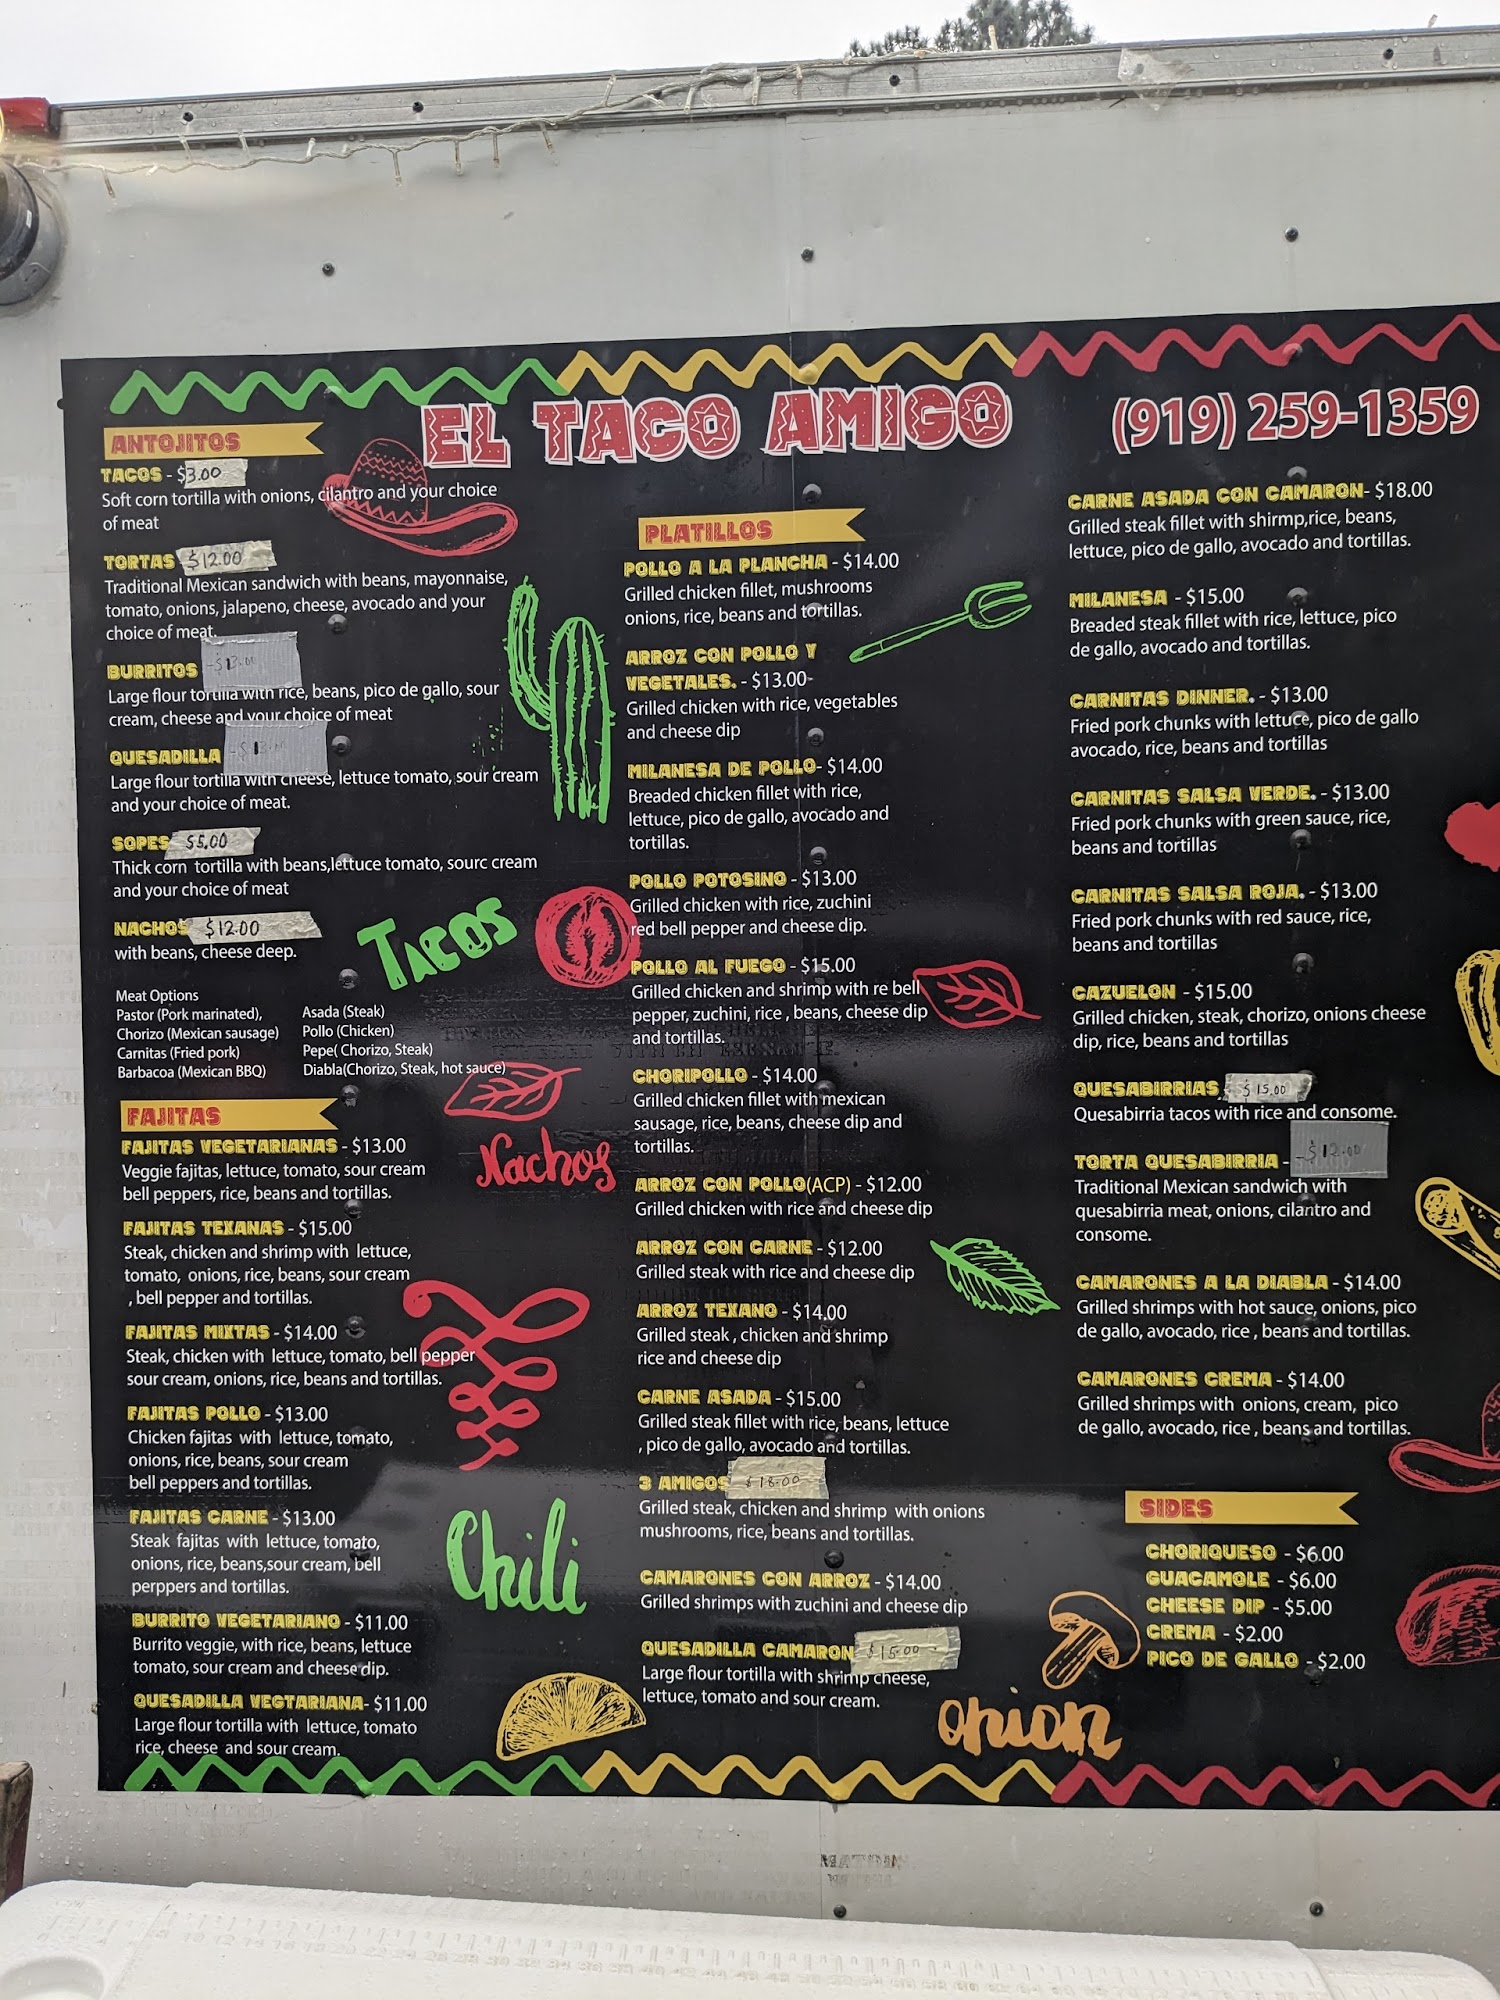 EL TACO AMIGO
(919) 259-1359
ANTOJITOS
TACOS - $3.00
Soft corn tortilla with onions, cilantro and your choice
of meat
TORTAS $12.00
Traditional Mexican sandwich with beans, mayonnaise,
tomato, onions, jalapeno, cheese, avocado and your
choice of meat.
BURRITOS -$13.00
Large flour tortilla with rice, beans, pico de gallo, sour
cream, cheese and your choice of meat
QUESADILLA -$13.00
Large flour tortilla with cheese, lettuce tomato, sour cream
and your choice of meat.
SOPES $5.00
Thick corn tortilla with beans,lettuce tomato, sourc cream
and your choice of meat
NACHOS $12.00
with beans, cheese deep.
Meat Options
Pastor (Pork marinated),
Chorizo (Mexican sausage)
Carnitas (Fried pork)
Barbacoa (Mexican BBQ)
Asada (Steak)
Pollo (Chicken)
Pepe( Chorizo, Steak)
Diabla(Chorizo, Steak, hot sauce)
TACOS
FAJITAS
FAJITAS VEGETARIANAS - $13.00
Veggie fajitas, lettuce, tomato, sour cream
bell peppers, rice, beans and tortillas.
FAJITAS TEXANAS - $15.00
Steak, chicken and shrimp with lettuce,
tomato, onions, rice, beans, sour cream
, bell pepper and tortillas.
FAJITAS MIXTAS - $14.00
Steak, chicken with lettuce, tomato, bell pepper
sour cream, onions, rice, beans and tortillas.
FAJITAS POLLO - $13.00
Chicken fajitas with lettuce, tomato,
onions, rice, beans, sour cream
bell peppers and tortillas.
FAJITAS CARNE - $13.00
Steak fajitas with lettuce, tomato,
onions, rice, beans,sour cream, bell
perppers and tortillas.
BURRITO VEGETARIANO - $11.00
Burrito veggie, with rice, beans, lettuce
tomato, sour cream and cheese dip.
QUESADILLA VEGTARIANA- $11.00
Large flour tortilla with lettuce, tomato
rice, cheese and sour cream.
Nachos
Chili
PLATILLOS
POLLO A LA PLANCHA - $14.00
Grilled chicken fillet, mushrooms
onions, rice, beans and tortillas.
ARROZ CON POLLO Y
VEGETALES. - $13.00-
Grilled chicken with rice, vegetables
and cheese dip
MILANESA DE POLLO- $14.00
Breaded chicken fillet with rice,
lettuce, pico de gallo, avocado and
tortillas.
POLLO POTOSINO - $13.00
Grilled chicken with rice, zuchini
red bell pepper and cheese dip.
POLLO AL FUEGO - $15.00
Grilled chicken and shrimp with re bell
pepper, zuchini, rice , beans, cheese dip
and tortillas.
CHORIPOLLO - $14.00
Grilled chicken fillet with mexican
sausage, rice, beans, cheese dip and
tortillas.
ARROZ CON POLLO(ACP) - $12.00
Grilled chicken with rice and cheese dip
ARROZ CON CARNE - $12.00
Grilled steak with rice and cheese dip
ARROZ TEXANO - $14.00
Grilled steak , chicken and shrimp
rice and cheese dip
CARNE ASADA - $15.00
Grilled steak fillet with rice, beans, lettuce
, pico de gallo, avocado and tortillas.
3 AMIGOS $18.00
Grilled steak, chicken and shrimp with onions
mushrooms, rice, beans and tortillas.
CAMARONES CON ARROZ - $14.00
Grilled shrimps with zuchini and cheese dip
QUESADILLA CAMARON $15.00
Large flour tortilla with shrimp cheese,
lettuce, tomato and sour cream.
onion
CARNE ASADA CON CAMARON- $18.00
Grilled steak fillet with shirmp,rice, beans,
lettuce, pico de gallo, avocado and tortillas.
MILANESA - $15.00
Breaded steak fillet with rice, lettuce, pico
de gallo, avocado and tortillas.
CARNITAS DINNER. - $13.00
Fried pork chunks with lettuce, pico de gallo
avocado, rice, beans and tortillas
CARNITAS SALSA VERDE. - $13.00
Fried pork chunks with green sauce, rice,
beans and tortillas
CARNITAS SALSA ROJA. - $13.00
Fried pork chunks with red sauce, rice,
beans and tortillas
CAZUELON - $15.00
Grilled chicken, steak, chorizo, onions cheese
dip, rice, beans and tortillas
QUESABIRRIAS $15.00
Quesabirria tacos with rice and consome.
TORTA QUESABIRRIA - -$12.00
Traditional Mexican sandwich with
quesabirria meat, onions, cilantro and
consome.
CAMARONES A LA DIABLA - $14.00
Grilled shrimps with hot sauce, onions, pico
de gallo, avocado, rice , beans and tortillas.
CAMARONES CREMA - $14.00
Grilled shrimps with onions, cream, pico
de gallo, avocado, rice , beans and tortillas.
SIDES
CHORIQUESO - $6.00
GUACAMOLE - $6.00
CHEESE DIP - $5.00
CREMA - $2.00
PICO DE GALLO - $2.00